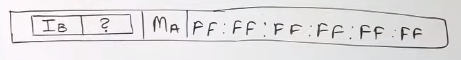 IB ? MA FF:FF:FF:FF:FF:FF